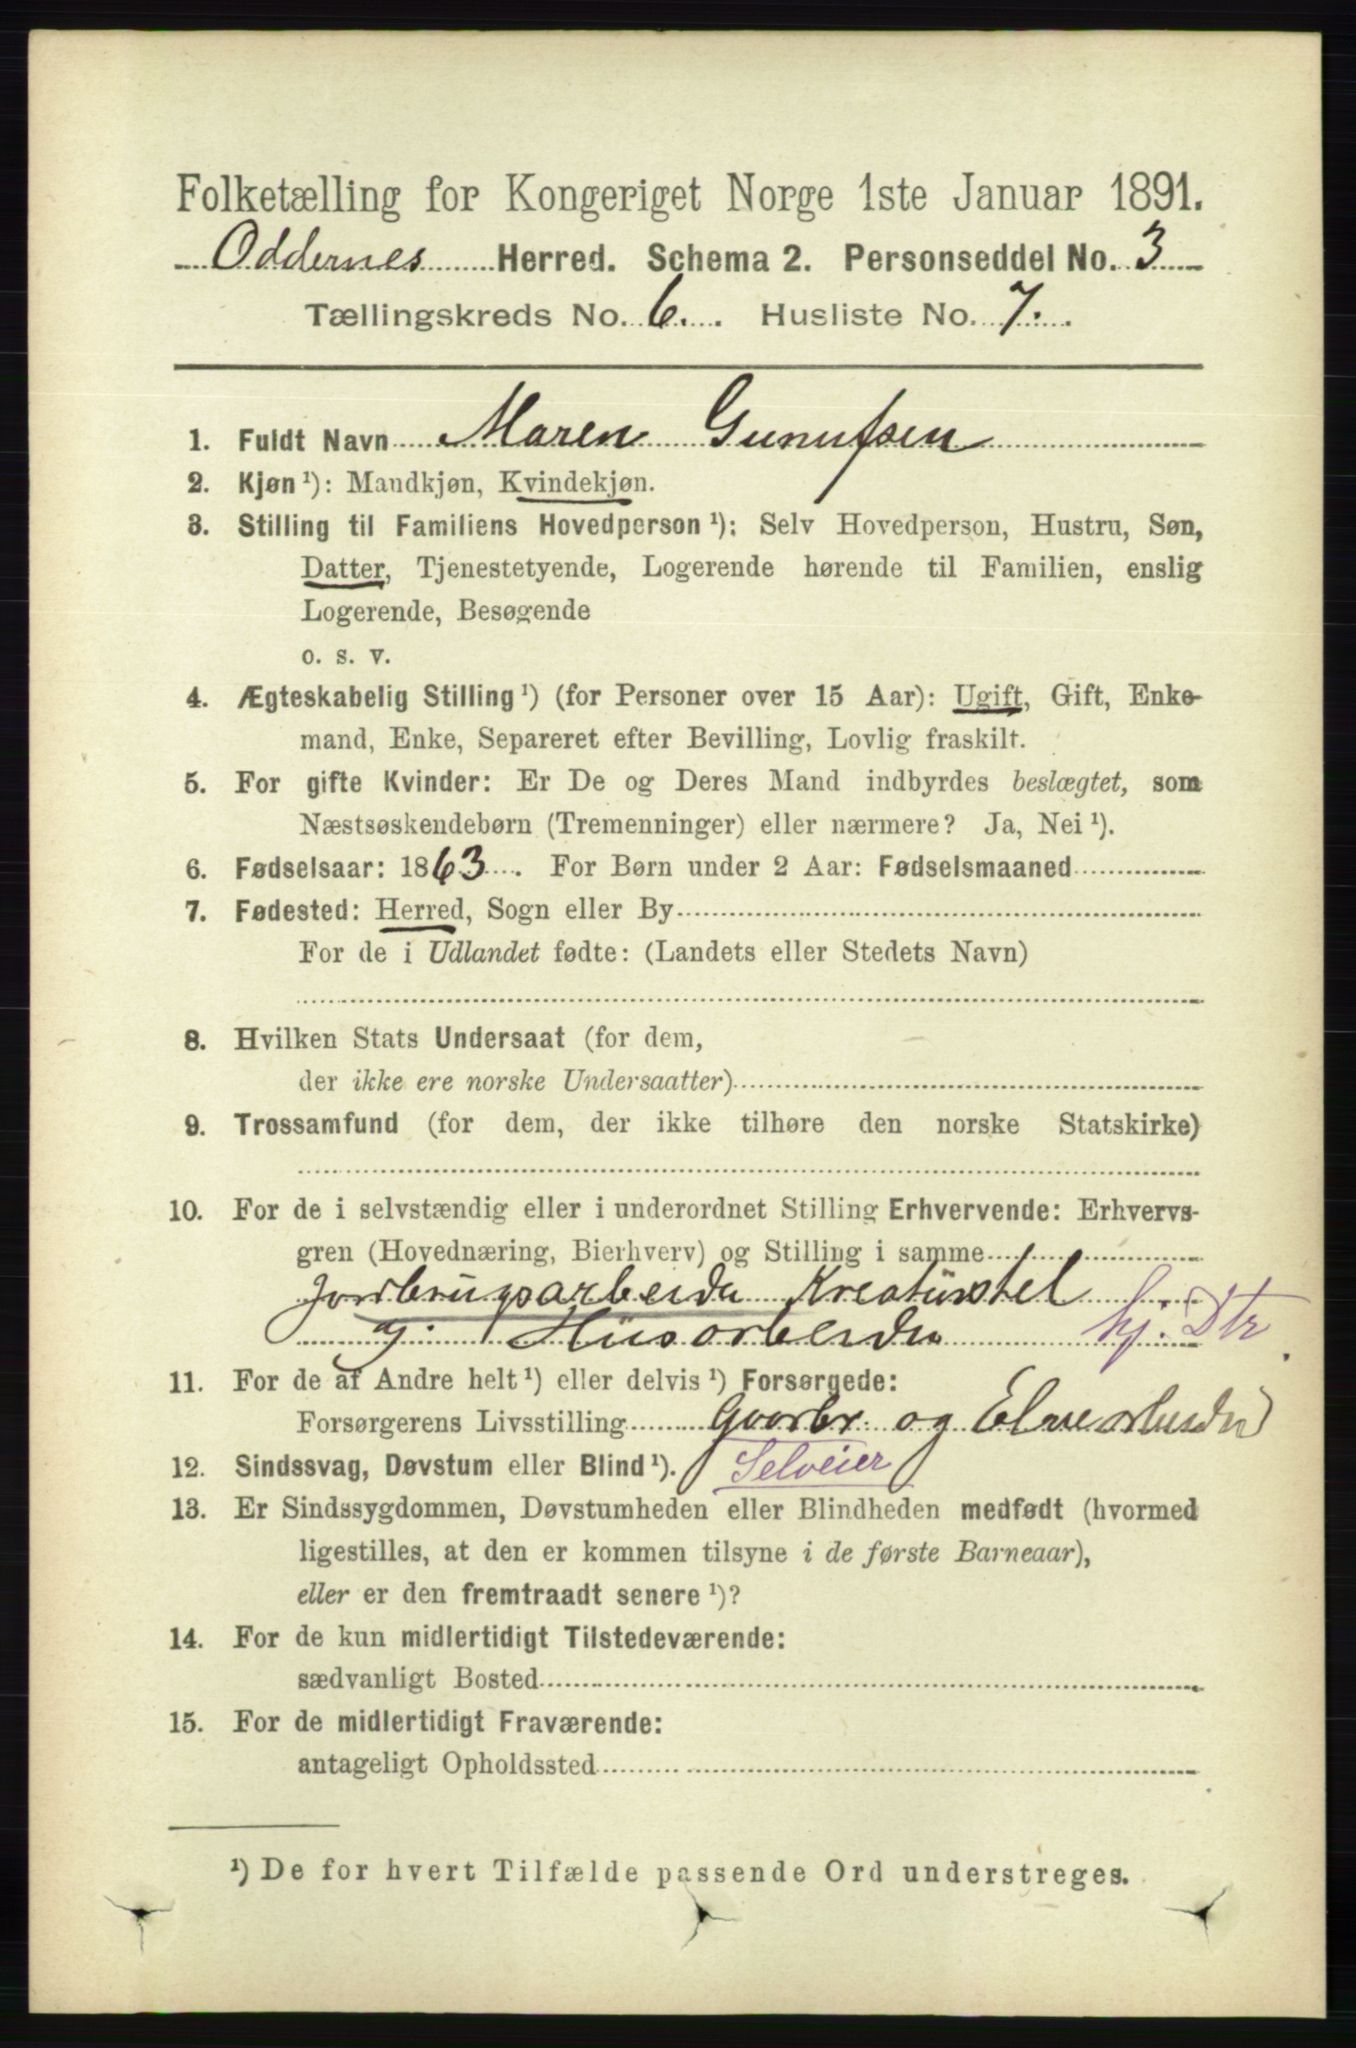 Folketælling for Kongeriget Norge 1ste Januar 1891.
Oddernes Herred. Schema 2. Personseddel No. 3
Tællingskreds No. 6. Husliste No. 7.
1. Fuldt Navn Maren Gunufsen
2. Kjøn ¹): Mandkjøn, Kvindekjøn.
3. Stilling til Familiens Hovedperson ¹): Selv Hovedperson, Hustru, Søn,
Datter, Tjenestetyende, Logerende hørende til Familien, enslig
Logerende, Besøgende
o. s. v.
4. Ægteskabelig Stilling ¹) (for Personer over 15 Aar): Ugift, Gift, Enke-
mand, Enke, Separeret efter Bevilling, Lovlig fraskilt.
5. For gifte Kvinder: Er De og Deres Mand indbyrdes beslægtet, som
Næstsøskendebørn (Tremenninger) eller nærmere? Ja, Nei ¹).
6. Fødselsaar: 1863. For Børn under 2 Aar: Fødselsmaaned
7. Fødested: Herred, Sogn eller By
For de i Udlandet fødte: (Landets eller Stedets Navn)
8. Hvilken Stats Undersaat (for dem,
der ikke ere norske Undersaatter)
9. Trossamfund (for dem, der ikke tilhøre den norske Statskirke)
10. For de i selvstændig eller i underordnet Stilling Erhvervende: Erhvervs-
gren (Hovednæring, Bierhverv) og Stilling i samme
Jordbrugsarbeide Kreaturstel
og Husarbeide hj. Dtr
11. For de af Andre helt ¹) eller delvis ¹) Forsørgede:
Forsørgerens Livsstilling Gaarbr. og Elvearbeider
12. Sindssvag, Døvstum eller Blind ¹). Selveier
13. Er Sindssygdommen, Døvstumheden eller Blindheden medfødt (hvormed
ligestilles, at den er kommen tilsyne i de første Barneaar),
eller er den fremtraadt senere ¹)?
14. For de kun midlertidigt Tilstedeværende:
sædvanligt Bosted
15. For de midlertidigt Fraværende:
antageligt Opholdssted
¹) De for hvert Tilfælde passende Ord understreges.